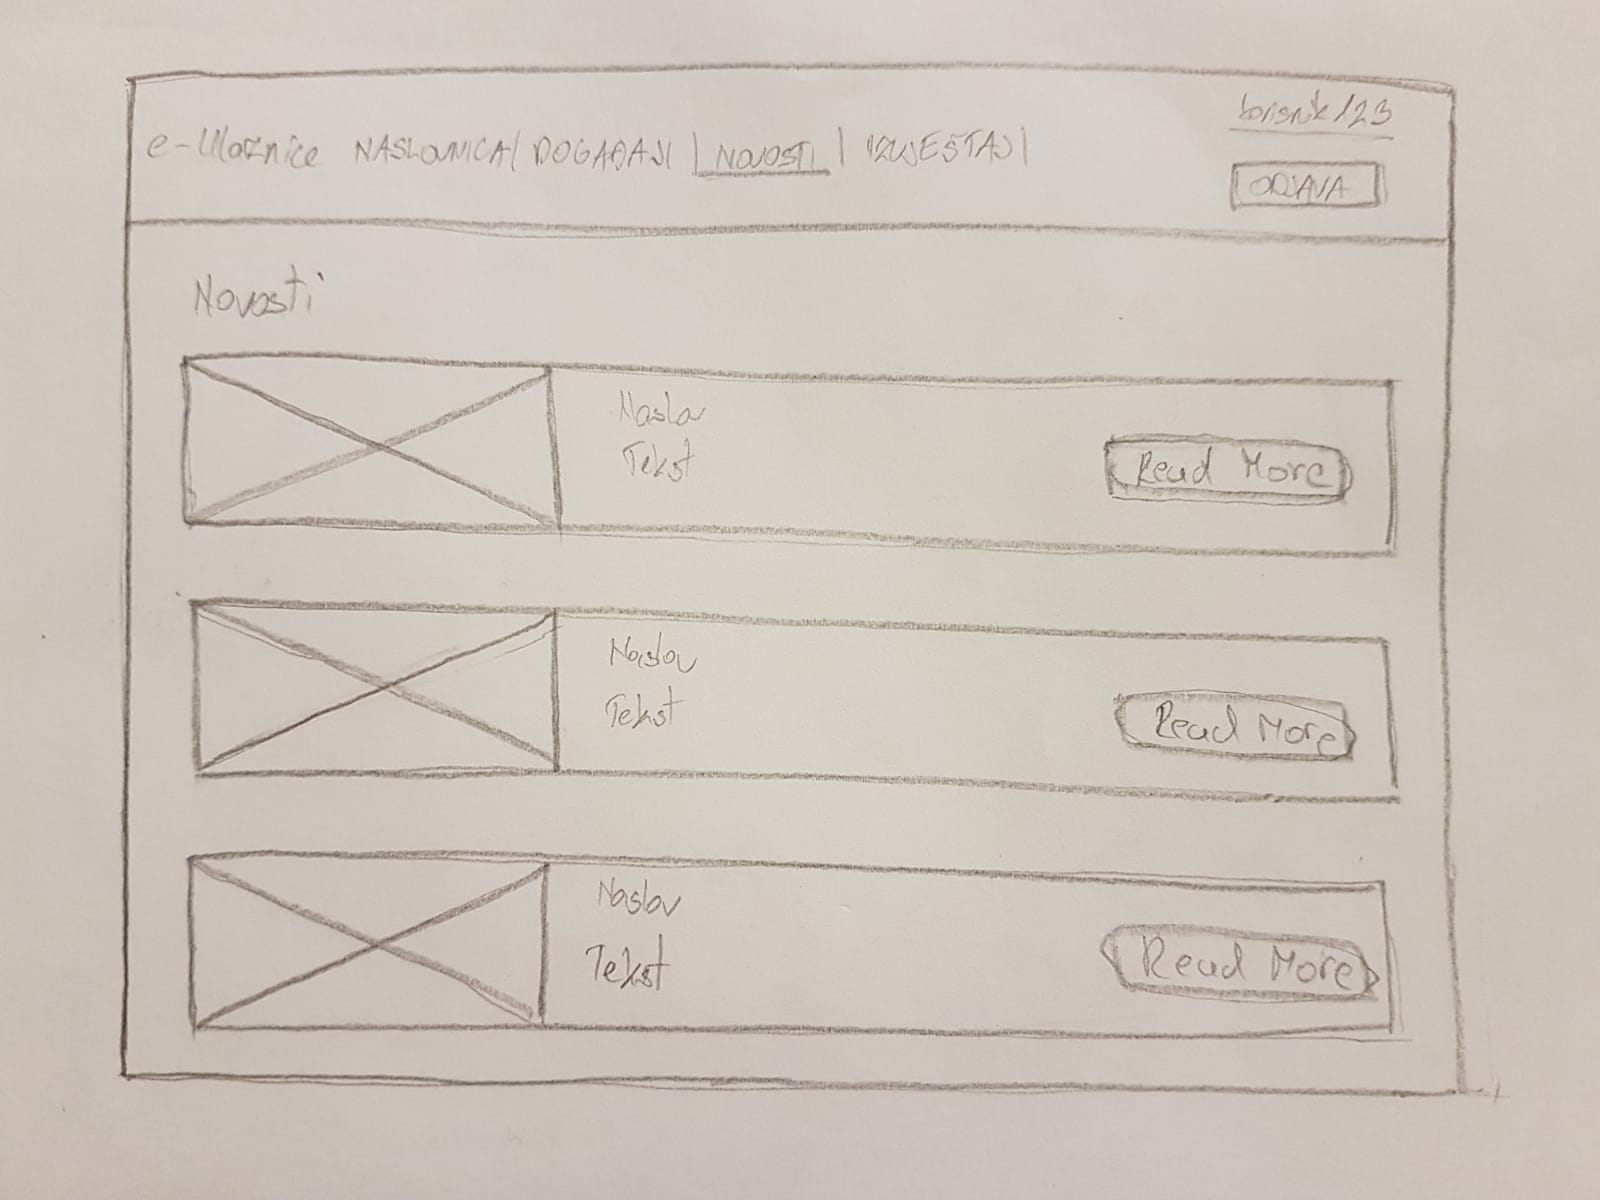 e-Ulaznice NASLOVNICA | DOGAĐAJI | NOVOSTI | IZVJEŠTAJI
korisnik123
ODJAVA
Novosti
Naslov
Tekst
Read More
Naslov
Tekst
Read More
Naslov
Tekst
Read More